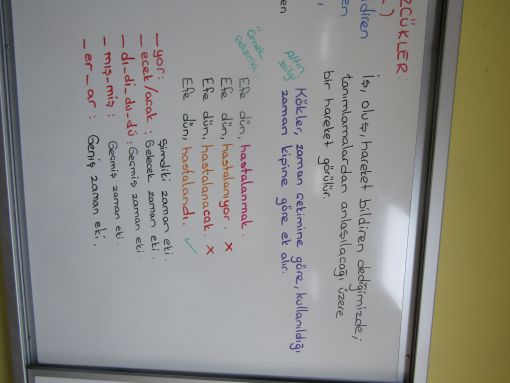 ZCÜKLER:
İş, oluş, hareket bildiren dediğimizde;
tanımlamalardan anlaşılacağı üzere
bir hareket görülür.
diren
en
altın bilgi
Kökler, zaman çekimine göre, kullanıldığı
zaman kipine göre ek alır.
Örnek çalışma:
Efe dün, hastalanmak.
Efe dün, hastalanıyor. x
Efe dün, hastalanacak. x
Efe dün, hastalandı. ✓
- yor: Şimdiki zaman eki.
- ecek/acak : Gelecek zaman eki.
- dı-di_du-dü: Geçmiş zaman eki.
- mış-miş : Geçmiş zaman eki.
- er_ar : Geniş zaman eki.